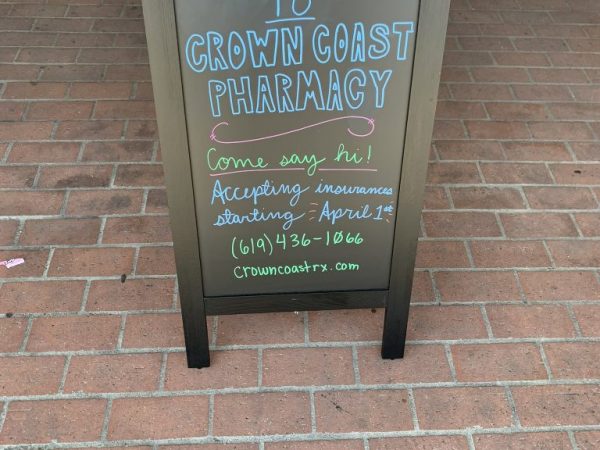 TO
CROWN COAST
PHARMACY
Come say hi!
Accepting insurances
starting April 1st
(619) 436-1066
crowncoastrx.com